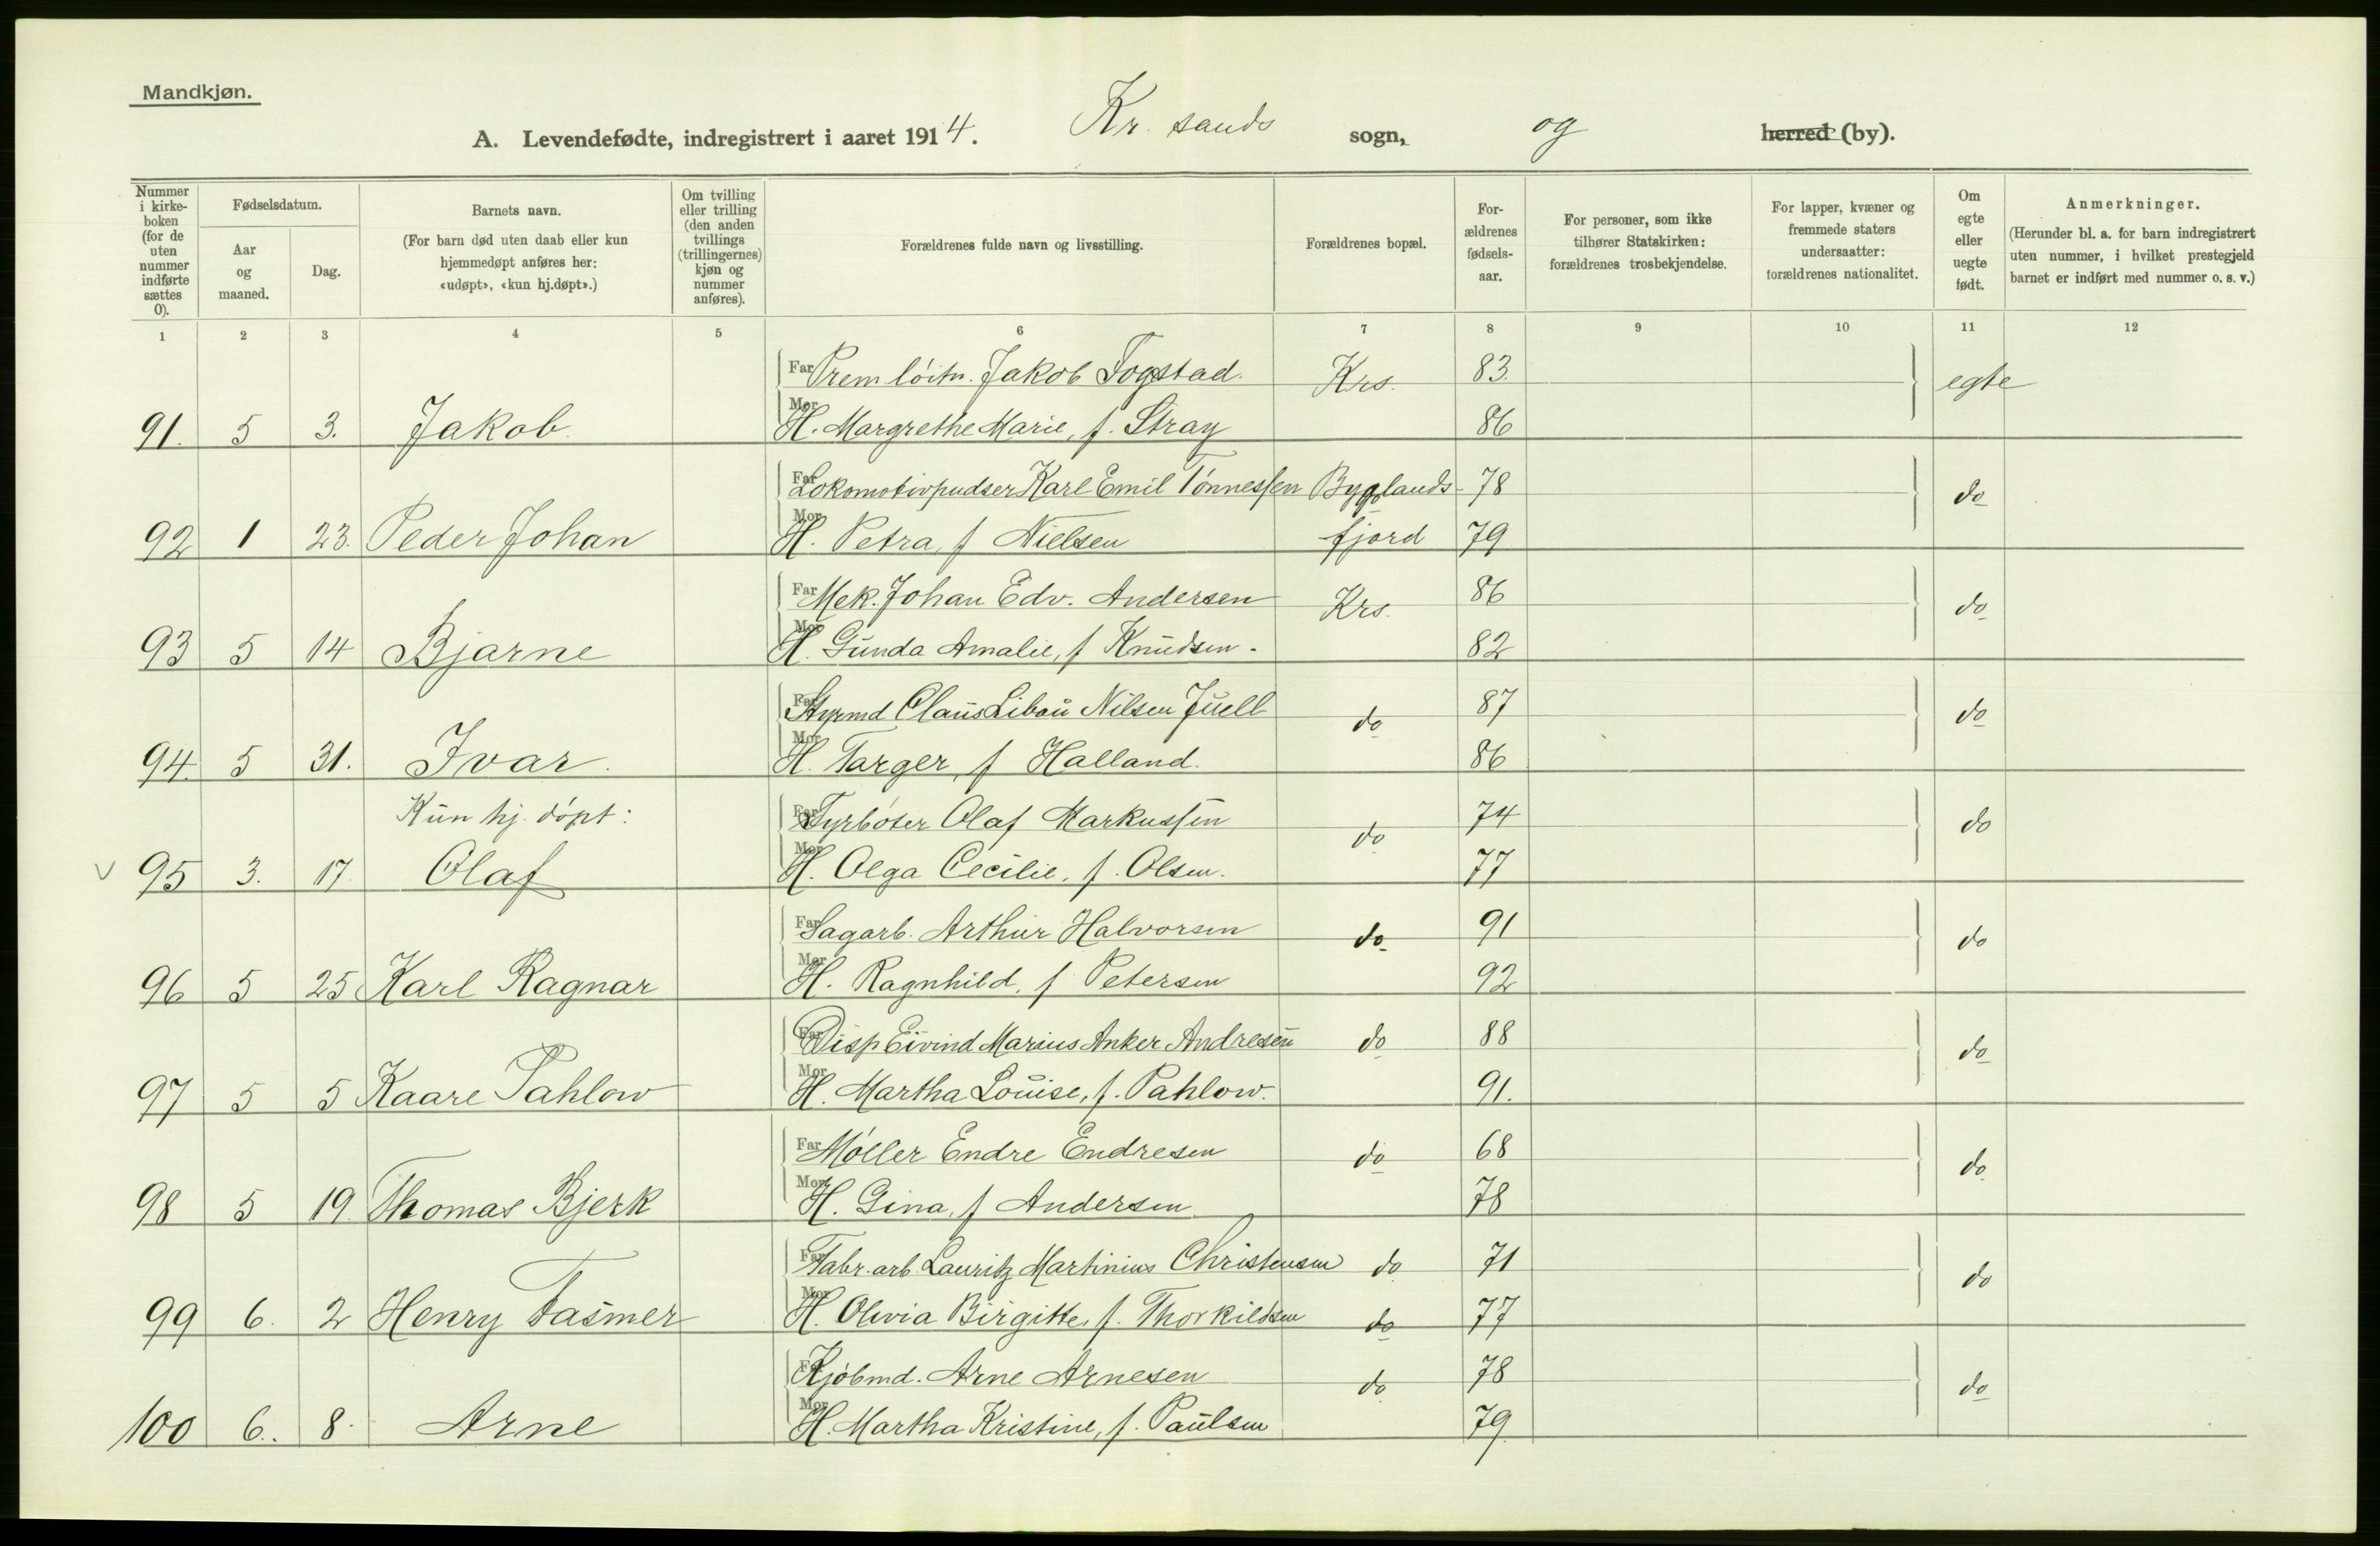 Mandkjøn.
A. Levendefødte, indregistrert i aaret 1914. Kr. sands sogn, og herred (by).
Nummer i kirkeboken (for de uten nummer indførte sættes 0).
Fødselsdatum.
Aar og maaned.
Dag.
Barnets navn.
(For barn død uten daab eller kun hjemmedøpt anføres her: «udøpt», «kun hj.døpt».)
Om tvilling eller trilling (den anden tvillings (trillingernes) kjøn og nummer anføres).
Forældrenes fulde navn og livsstilling.
Forældrenes bopæl.
For-ældrenes fødsels-aar.
For personer, som ikke tilhører Statskirken: forældrenes trosbekjendelse.
For lapper, kvæner og fremmede staters undersaatter: forældrenes nationalitet.
Om egte eller uegte født.
Anmerkninger.
(Herunder bl. a. for barn indregistrert uten nummer, i hvilket prestegjeld barnet er indført med nummer o. s. v.)
1 2 3 4 5 6 7 8 9 10 11 12
Far Prem løitn. Jakob Fogstad. Krs. 83. egte
91. 5 3. Jakob. Mor H. Margrethe Marie, f. Stray 86
Far Lokomotivpudser Karl Emil Tønnessen Byglands- 78 do
92 1 23. Peder Johan Mor H. Petra, f Nielsen fjord 79
Far Mek. Johan Edv. Andersen Krs. 86 do
93 5 14 Bjarne Mor H. Gunda Amalie, f Knudsen. 82
Far Styrmd Claus Libau Nilsen Juell do 87 do
94. 5 31. Ivar. Mor H. Targer, f Halland. 86
Kun hj. døpt: Far Fyrbøter Olaf Markussen do 74 do
v 95 3. 17. Olaf Mor H. Olga Cecilie, f. Olsen. 77
Far Sagarb. Arthur Halvorsen do 91 do
96 5 25 Karl Ragnar Mor H. Ragnhild, f Petersen 92
Far Disp Eivind Marius Anker Andresen do 88 do
97 5 5 Kaare Pahlow Mor H. Martha Louise, f. Pahlow. 91.
Far Møller Endre Endresen do 68 do
98 5 19. Thomas Bjerk Mor H. Gina, f Andersen 78
Far Fabr. arb. Lauritz Martinius Christensen do 71 do
99 6. 2 Henry Fasmer Mor H. Olivia Birgitte, f. Thorkildsen do 77
Far Kjøbmd. Arne Arnesen do 78 do
100 6. 8. Arne Mor H. Martha Kristine, f. Paulsen 79.